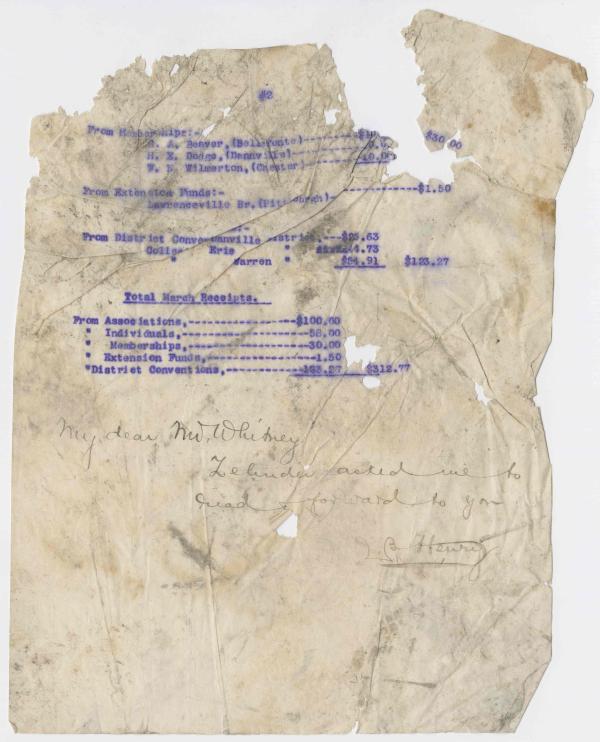 #2
From Memberships:-
A. Beaver,(Bellefonte)----------$10
H. E. Dodge,(Dannville)--------- $30.00
W. N. Wilmerton,(Chester)-------10.00
From Extension Funds:-
Lawrenceville Br.(Pittsburgh)- ------------$1.50
From District Danville District,---$23.63
Erie " 44.73
" Warren " $54.91 $123.27
Total March Receipts.
From Associations,----------------$100.00
" Individuals,-----------------58.00
" Memberships,----------------30.00
" Extension Funds,---------------1.50
"District Conventions,-----------123.27 $312.77
My dear Mr. Whitney
asked me to
read & forward to you
Henry